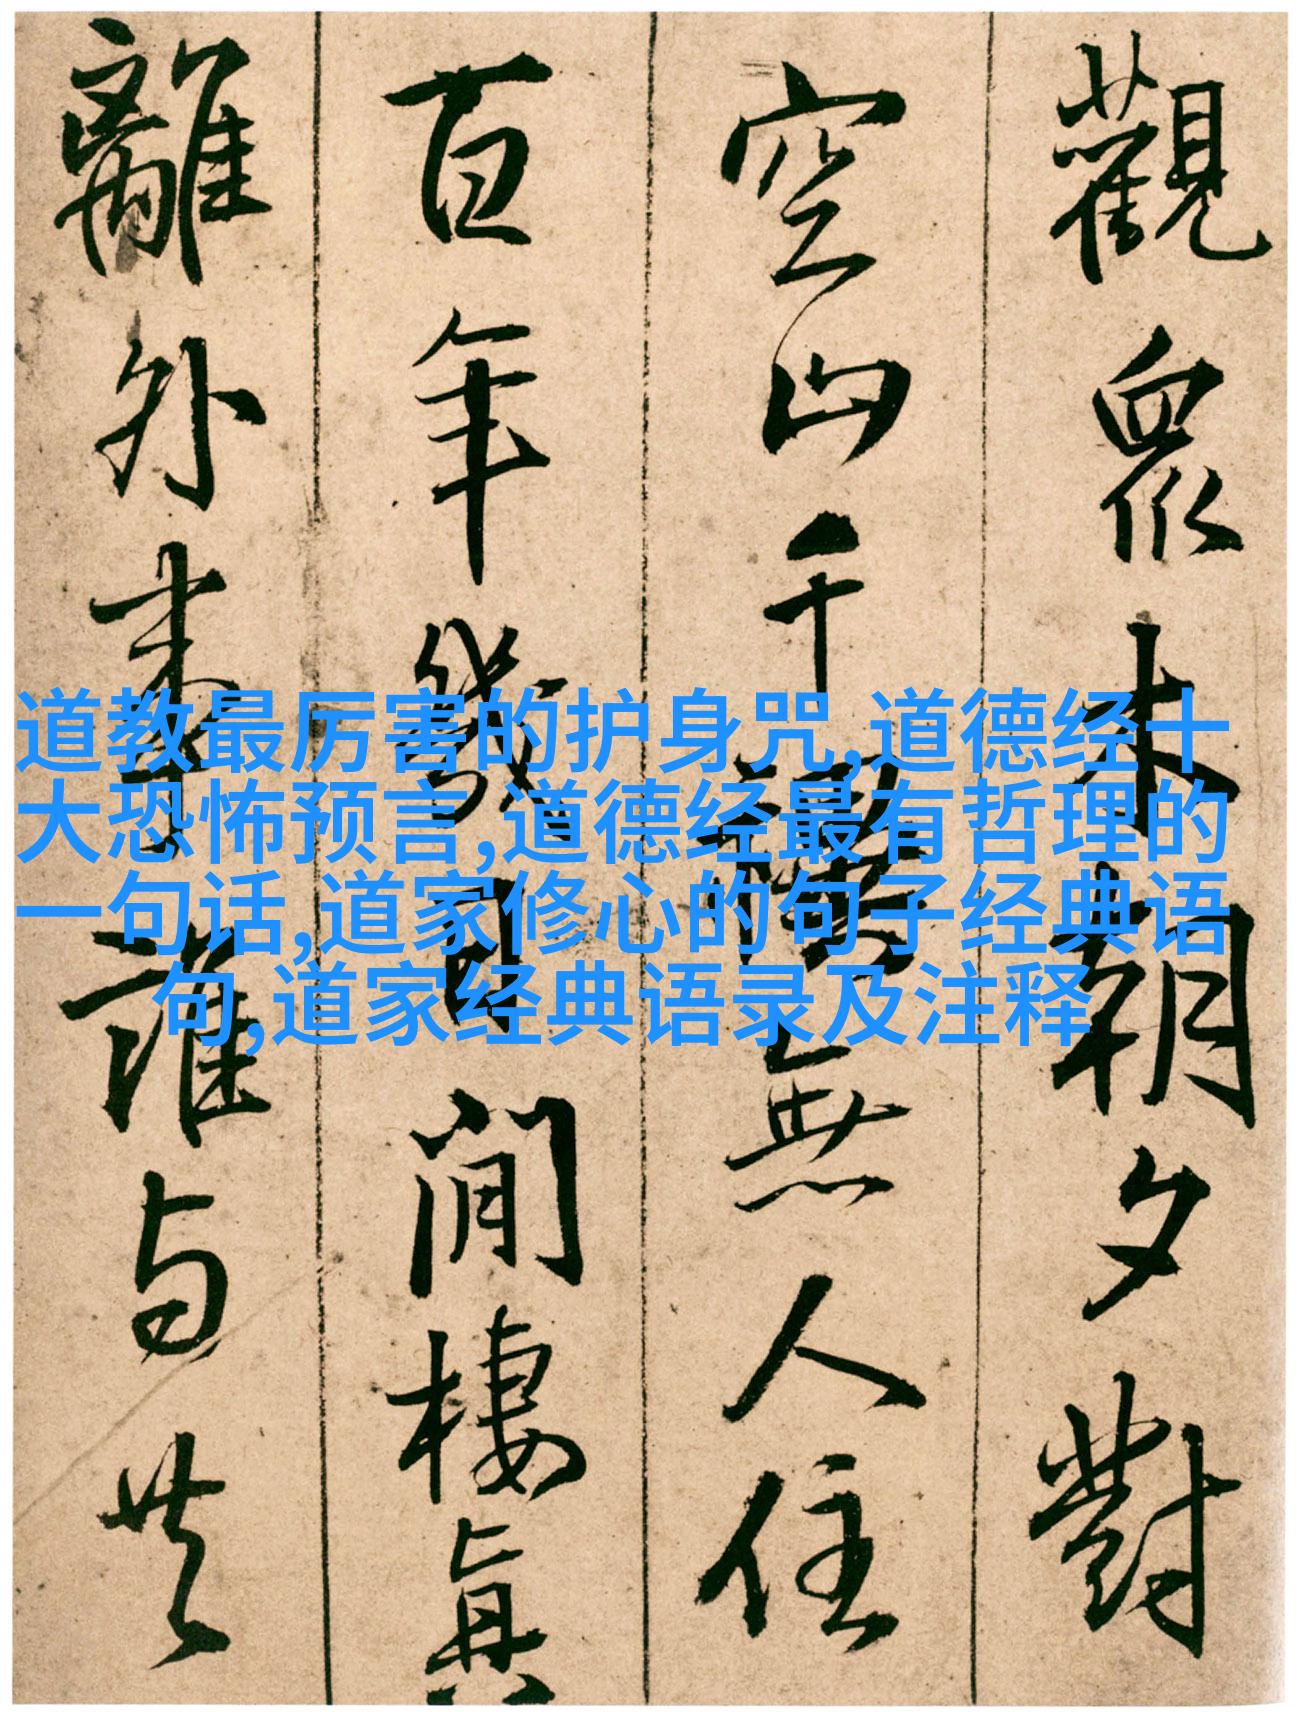 觀眾木朝夕對
空山千無人住
百年幾日閒棲真
離外事誰与共
道教最厉害的护身咒,道德经十
大恐怖预言,道德经最有哲理的
一句话,道家修心的句子经典语
句,道家经典语录及注释